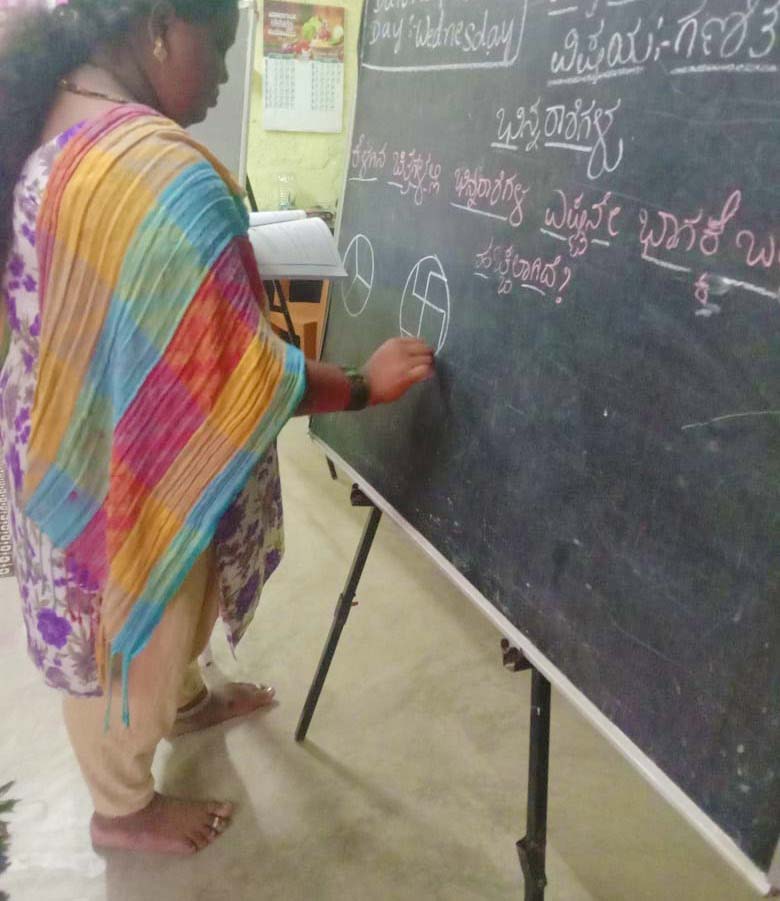 Day : Wednesday
ವಿಷಯ:- ಗಣಿತ
ಭಿನ್ನರಾಶಿಗಳು
ಕೆಳಗಿನ ಚಿತ್ರಗಳಲ್ಲಿ ಭಿನ್ನರಾಶಿಗಳ ಎಷ್ಟನೇ ಭಾಗಕೆ
ಕ
ಹಚ್ಚಲಾಗಿದೆ?